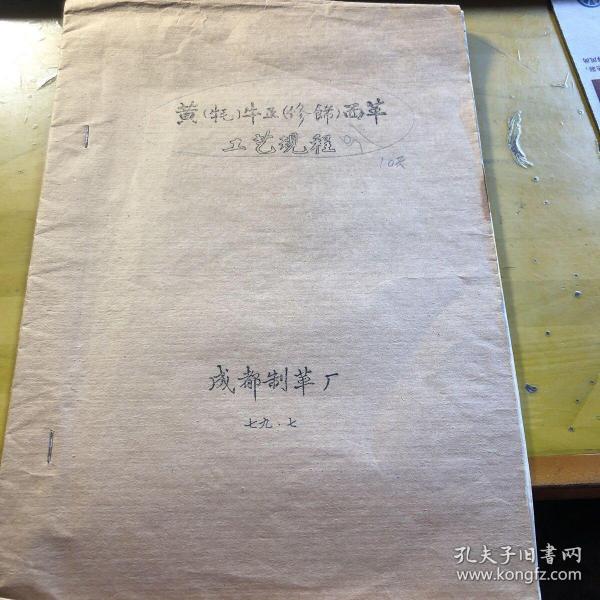 黄(牦)牛正(修饰)面革
工艺规程
10天
成都制革厂
七九.七
孔夫子旧书网
www.kongfz.com